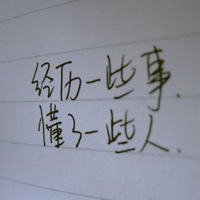 经历一些事.
懂了一些人.